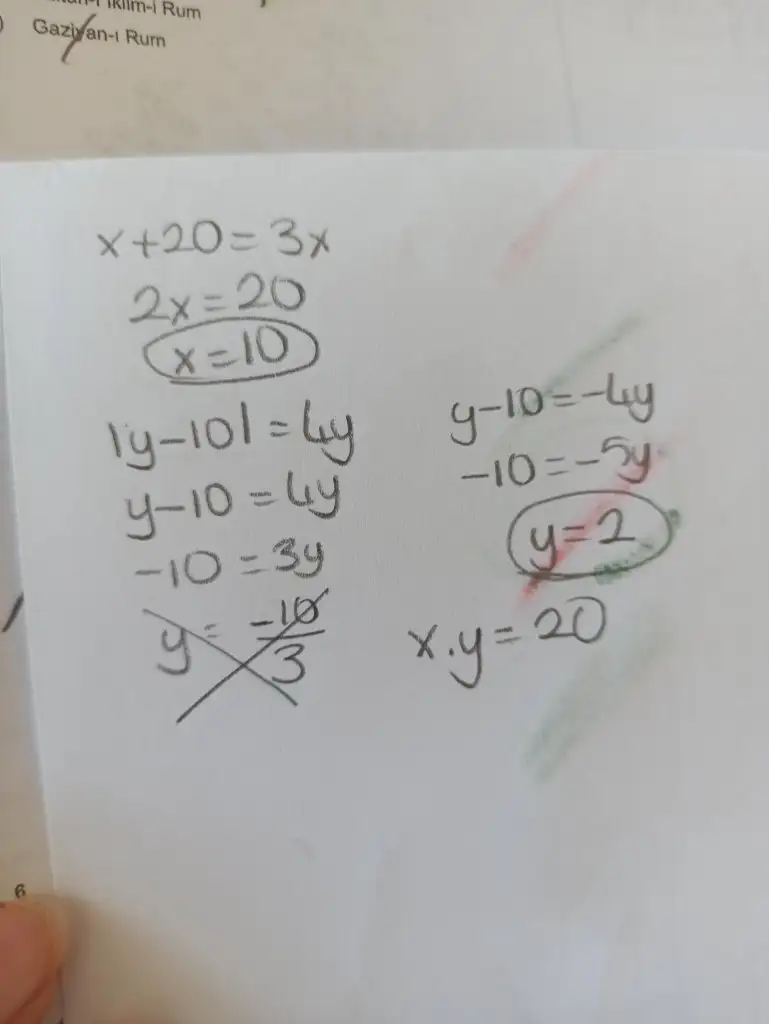 Gaziyan-ı Rum
x+20=3x
2x=20
x=10
|y-10|=4y
y-10=4y
-10=3y
y=-10/3
y-10=-4y
-10=-5y
y=2
x.y=20
6